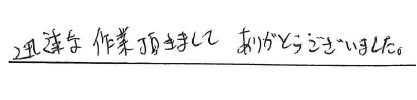 迅速な作業頂きまして ありがとうございました。